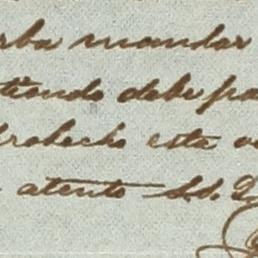 rba mandar
tiendo debe pa
robecho esta o
atento S.S. Q